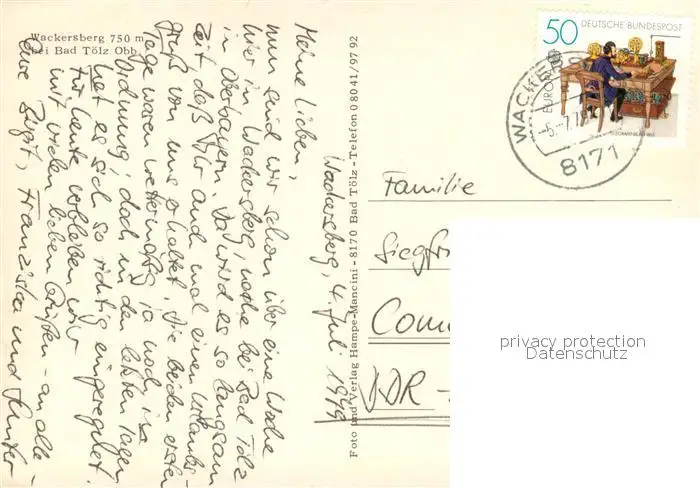 Wackersberg 750 m
bei Bad Tölz Obb.
Wackersberg, 4. Juli 1979
Meine Lieben,
nun sind wir schon über eine Woche
hier in Wackersberg, nahe bei Bad Tölz
in Oberbayern. Da wird es so langsam
Zeit, daß Ihr auch mal einen Urlaubs-
gruß von uns erhaltet. Die beiden ersten
Tage waren wettermäßig ja noch in
Ordnung, doch in den letzten Tagen
hat es sich so richtig eingeregnet.
Für heute verbleiben wir
mit vielen lieben Grüßen - an alle -
Eure Birgit, Franziska und Günter
Foto und Verlag Hampe-Mancini - 8170 Bad Tölz - Telefon 0 80 41/97 92
50 DEUTSCHE BUNDESPOST
EUROPA
8171
Familie
DDR -
privacy protection
Datenschutz